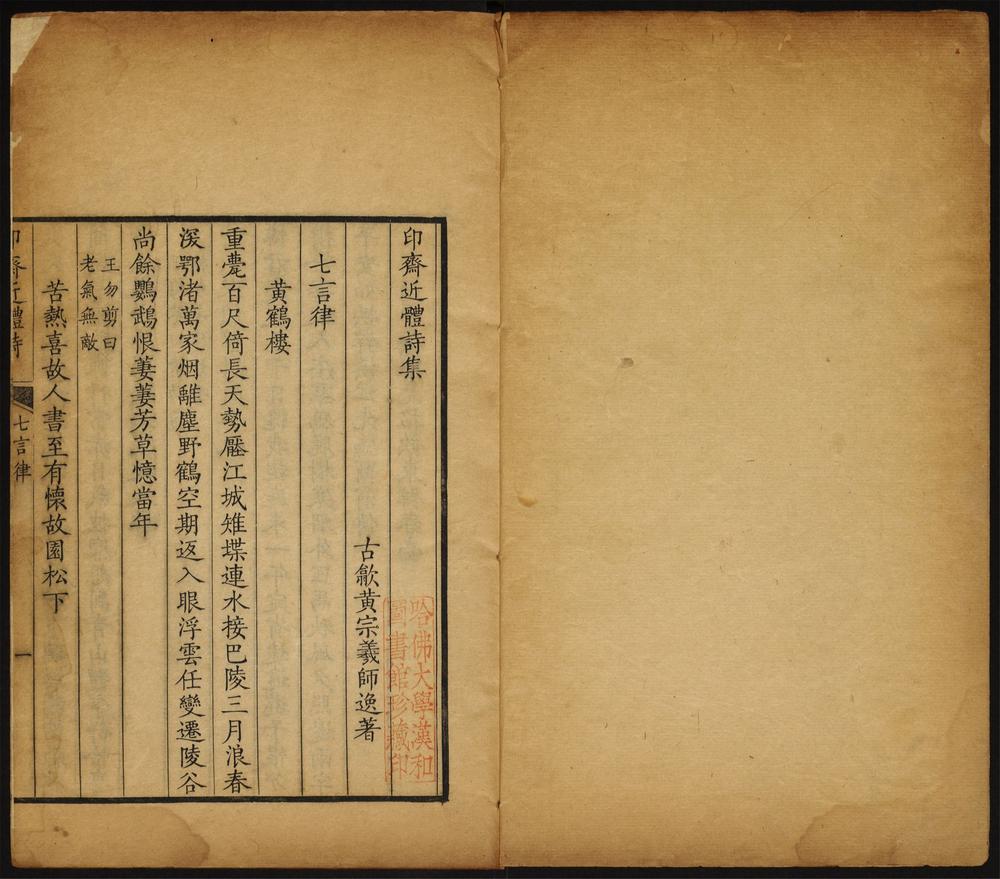 印齋近體詩集
哈佛大學漢和
圖書館珍藏印
古歙黄宗羲師逸著
七言律
黄鶴樓
重甍百尺倚長天勢壓江城雉堞連水接巴陵三月浪春
深鄂渚萬家烟離塵野鶴空期返入眼浮雲任變遷陵谷
尚餘鸚鵡恨萋萋芳草憶當年
王勿剪曰
老氣無敵
苦熱喜故人書至有懷故園松下
印齋近體詩 七言律 一